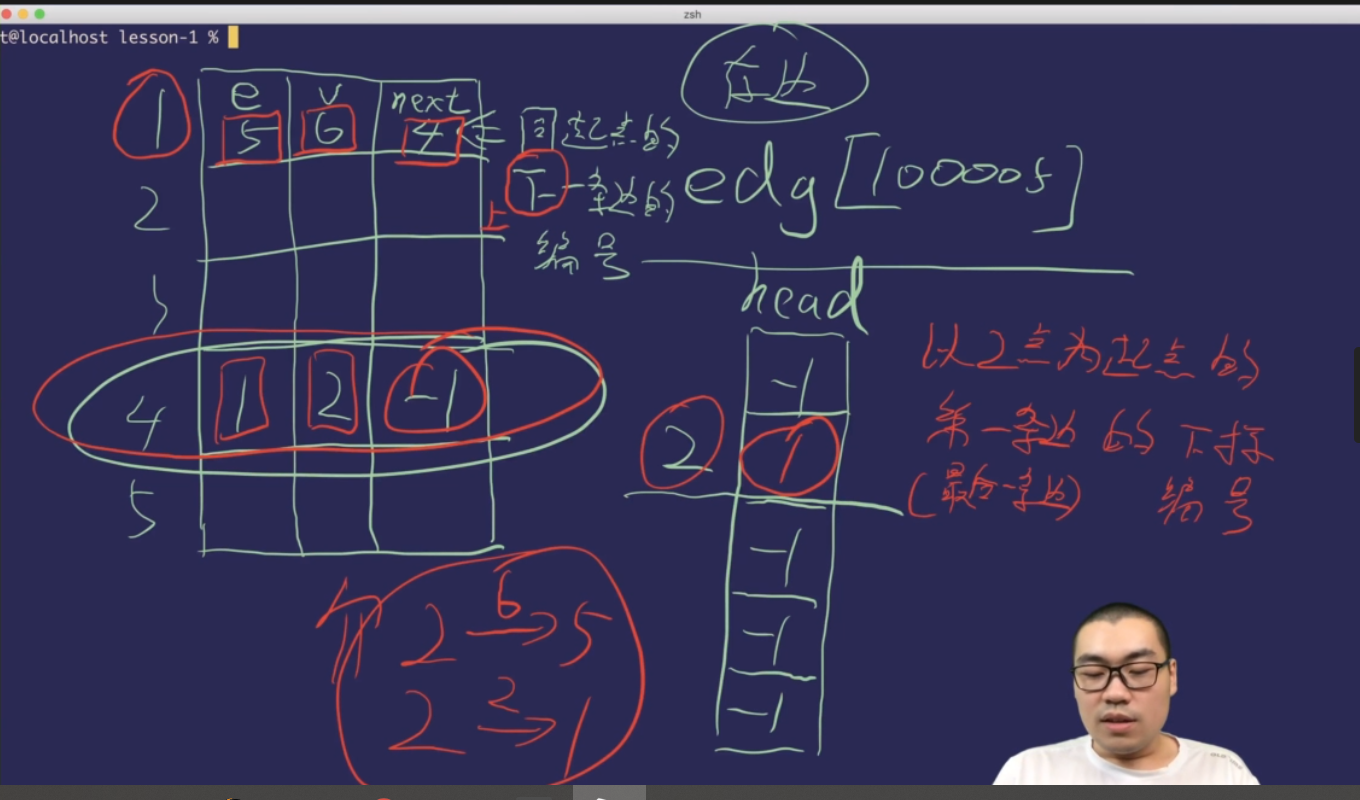 zsh
t@localhost lesson-1 %
存边
e v next
1 5 6 4 ⇐ 同起点的
下一条边的
上
编号
edg[100005]
2
3
4 1 2 -1
5
head
-1
2 1
-1
-1
-1
以2点为起点的
第一条边的下标
(最后一条边) 编号
2 6→ 5
2 2→ 1